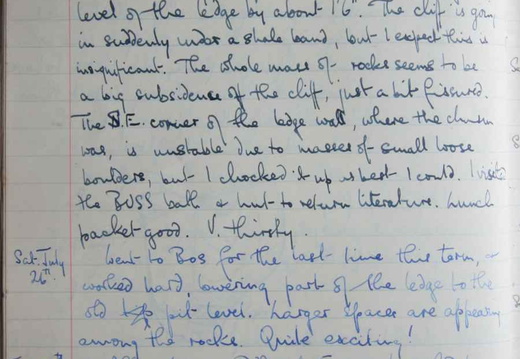 level of the ledge by about 1'6". The cliff is going
in suddenly under a shale band, but I expect this is
insignificant. The whole mass of rocks seems to be
a big subsidence of the cliff, just a bit fissured.
The S.E. corner of the ledge wall, where the
was, is unstable due to masses of small loose
boulders, but I chocked it up as best I could. I visited
the BUSS bath & hut to return literature. Lunch
packet good. V. thirsty.
Sat. July 26th. Went to Bos for the last time this term, &
worked hard, lowering part of the ledge to the
old pit level. Larger spaces are appearing
among the rocks. Quite exciting!